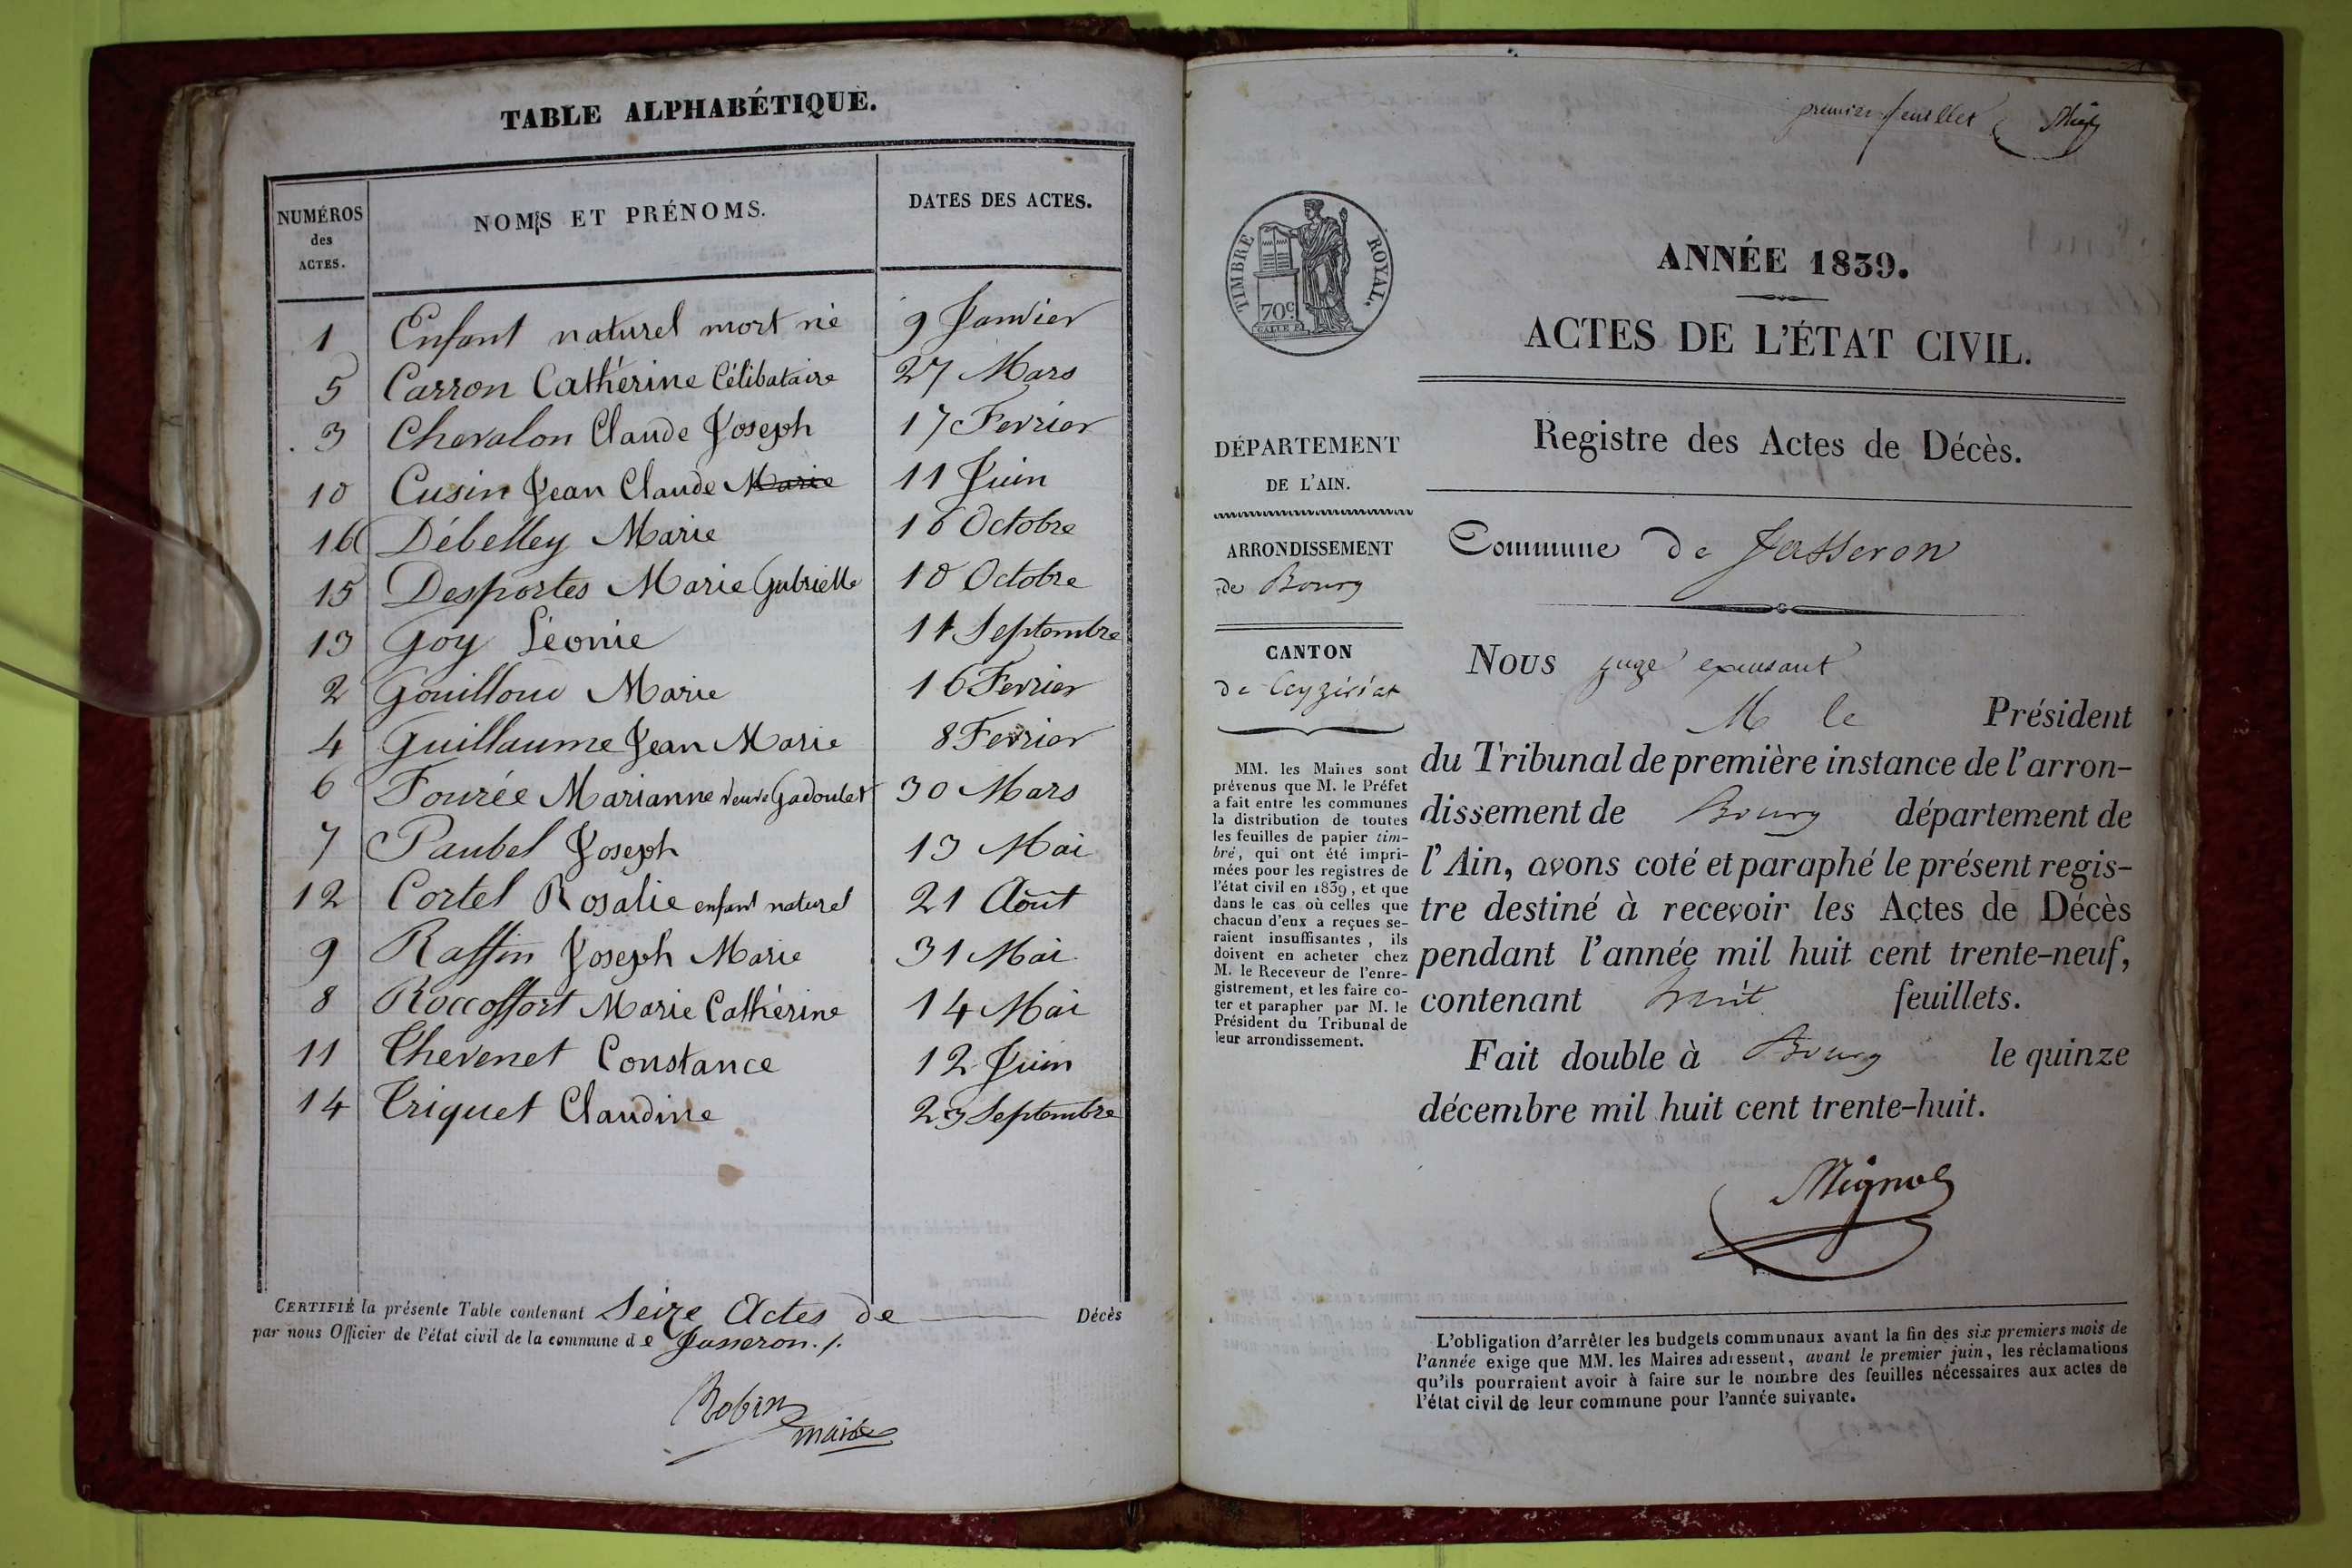 TABLE ALPHABÉTIQUE.
NUMÉROS des ACTES. NOMS ET PRÉNOMS. DATES DES ACTES.
1 Enfant naturel mort né 9 Janvier
5 Carron Cathérine Célibataire 27 Mars
3 Chevalon Claude Joseph 17 Fevrier
10 Cusin Jean Claude Marie 11 Juin
16 Débelley Marie 16 Octobre
15 Desportes Marie Gabrielle 10 Octobre
13 Goy Léonie 11 Septembre
2 Gouilloud Marie 16 Fevrier
4 Guillaume Jean Marie 8 Fevrier
6 Fourée Marianne veuve Gadoulet 30 Mars
7 Paubel Joseph 13 Mai
12 Cortel Rosalie enfant naturel 21 Août
9 Raffin Joseph Marie 31 Mai
8 Roccoffort Marie Cathérine 14 Mai
11 Thevenet Constance 12 Juin
14 Triquet Claudine 23 Septembre
CERTIFIÉ la présente Table contenant Seize Actes de Décès
par nous Officier de l'état civil de la commune de Jasseron./.
Robin
maire
premier feuillet
TIMBRE ROYAL.
70c
ANNÉE 1839.
ACTES DE L'ÉTAT CIVIL.
Registre des Actes de Décès.
DÉPARTEMENT
DE L'AIN.
ARRONDISSEMENT
de Bourg
CANTON
de Ceyzeriat
MM. les Maires sont
prévenus que M. le Préfet
a fait entre les communes
la distribution de toutes
les feuilles de papier tim-
bré, qui ont été impri-
mées pour les registres de
l'état civil en 1839, et que
dans le cas où celles que
chacun d'eux a reçues se-
raient insuffisantes, ils
doivent en acheter chez
M. le Receveur de l'enre-
gistrement, et les faire co-
ter et parapher par M. le
Président du Tribunal de
leur arrondissement.
Commune de Jasseron
Nous juge excusant
M le Président
du Tribunal de première instance de l'arron-
dissement de Bourg département de
l'Ain, avons coté et paraphé le présent regis-
tre destiné à recevoir les Actes de Décès
pendant l'année mil huit cent trente-neuf,
contenant huit feuillets.
Fait double à Bourg le quinze
décembre mil huit cent trente-huit.
L'obligation d'arrêter les budgets communaux avant la fin des six premiers mois de
l'année exige que MM. les Maires adressent, avant le premier juin, les réclamations
qu'ils pourraient avoir à faire sur le nombre des feuilles nécessaires aux actes de
l'état civil de leur commune pour l'année suivante.